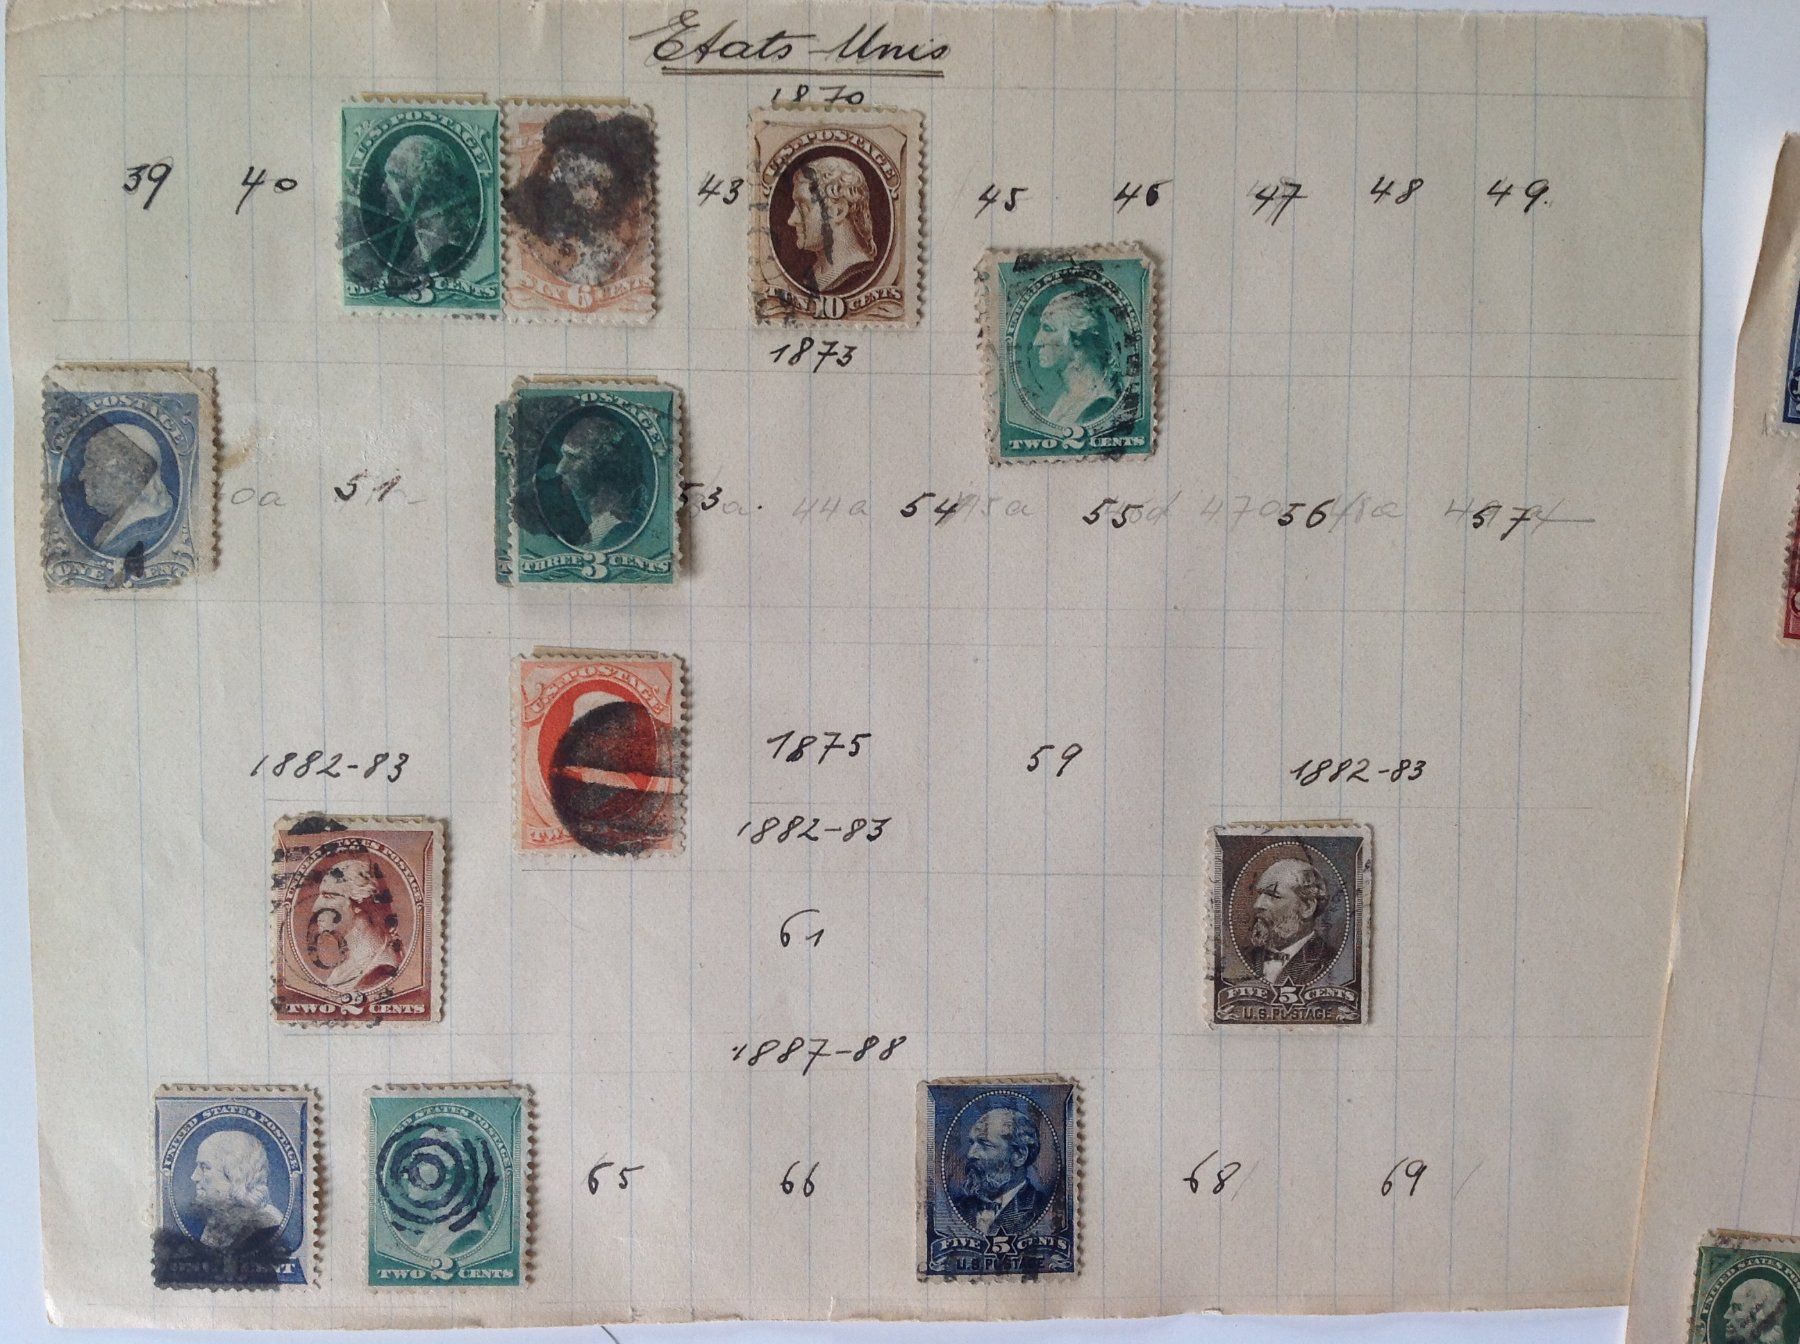 Etats-Unis
1870
39 40 43 45 46 47 48 49.
U.S. POSTAGE
3 CENTS
6 CENTS
U.S. POSTAGE
TEN 10 CENTS
1873
TWO 2 CENTS
POSTAGE
ONE 1 CENT
POSTAGE
THREE 3 CENTS
0a 51 53 a. 44a 54 45a 55 47a 56 48a 57
U.S. POSTAGE
1882-83 1875 59 1882-83
1882-83
UNITED STATES POSTAGE
6
TWO 2 CENTS
61
FIVE 5 CENTS
U.S. POSTAGE
1887-88
UNITED STATES POSTAGE
CENT
STATES POSTAGE
TWO 2 CENTS
65 66 68 69
FIVE 5 CENTS
U.S. POSTAGE
UNITED STATES